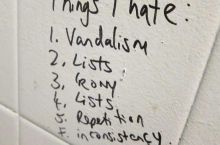 Things I hate:
1. Vandalism
2. Lists
3. Irony
4. Lists
5. Repetition
F. inconsistency